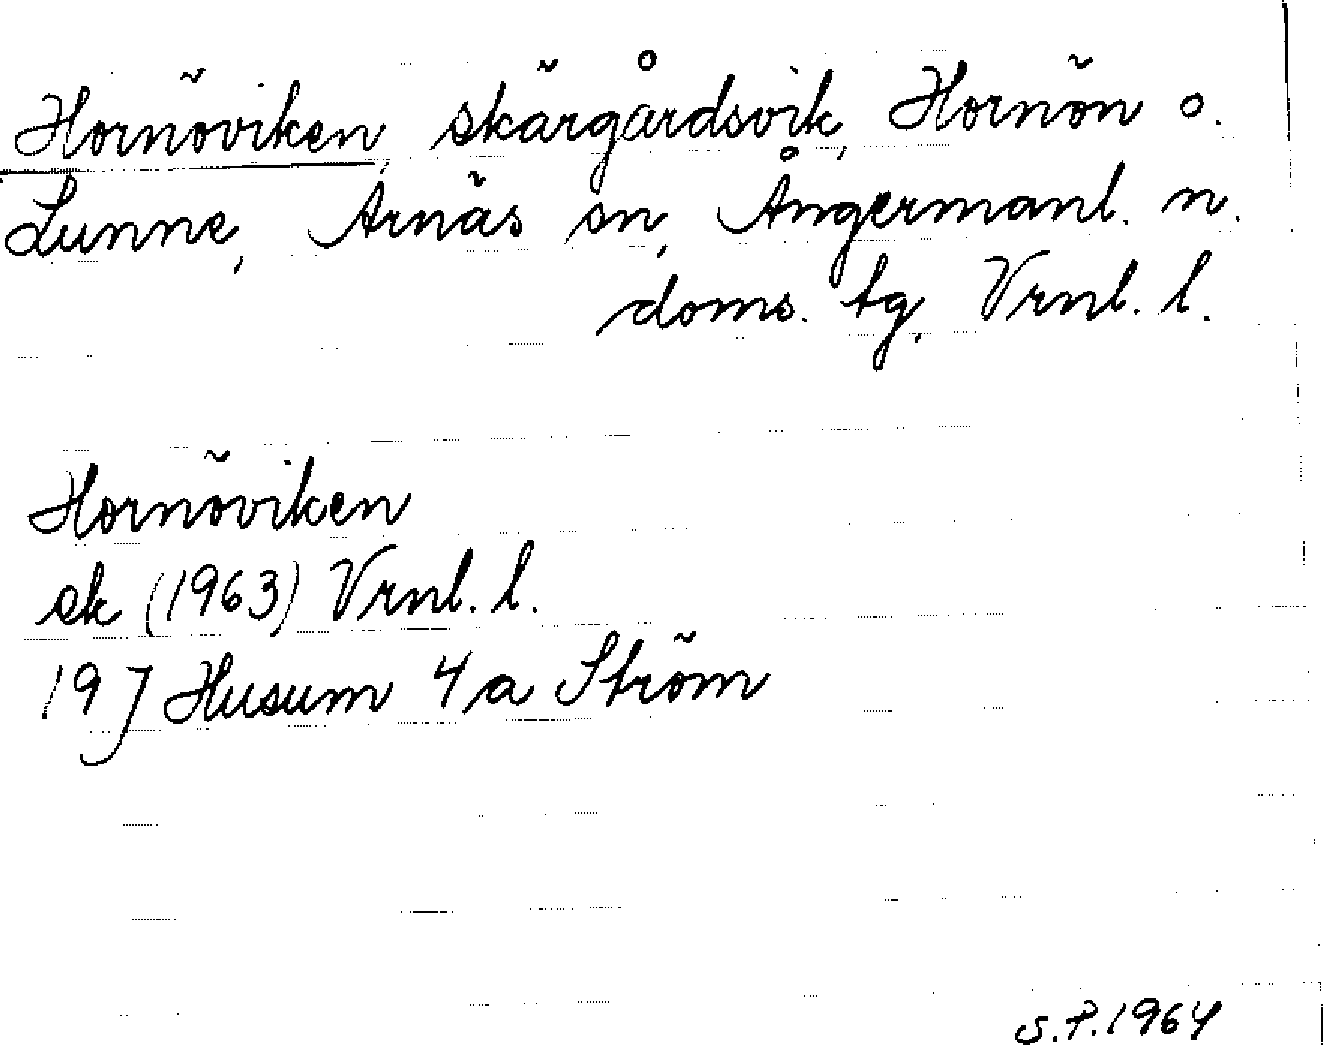 Hornöviken, skärgårdsvik, Hornön o.
Lunne, Arnäs sn, Ångermanl. n.
doms. tg, Vrnl. l.
Hornöviken
ek (1963) Vrnl. l.
19 J Husum 4a Ström
S.P. 1964